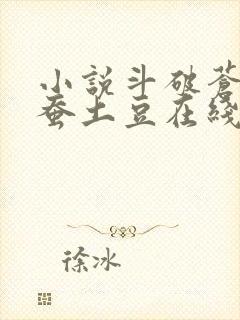 小說斗破蒼
蚕土豆在綫
徐冰